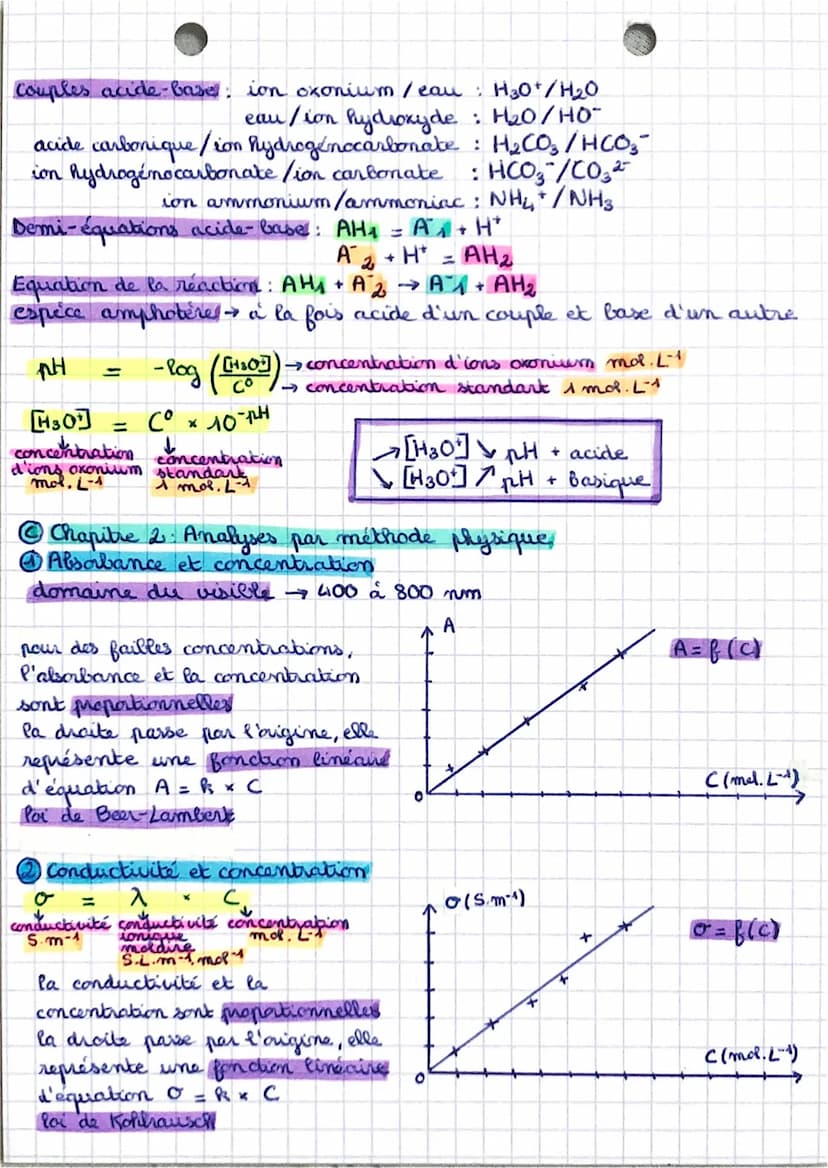 Couples acide-base : ion oxonium / eau : H₃O⁺/H₂O
eau / ion hydroxyde : H₂O / HO⁻
acide carbonique / ion hydrogénocarbonate : H₂CO₃ / HCO₃⁻
ion hydrogénocarbonate / ion carbonate : HCO₃⁻/CO₃²⁻
ion ammonium / ammoniac : NH₄⁺ / NH₃
Demi-équations acide-base : AH₁ = A⁻₁ + H⁺
A⁻₂ + H⁺ = AH₂
Equation de la réaction : AH₁ + A⁻₂ → A⁻₁ + AH₂
espèce amphotère → à la fois acide d'un couple et base d'un autre
pH = -log ([H₃O⁺]/C⁰) → concentration d'ions oxonium mol.L⁻¹
→ concentration standart 1 mol.L⁻¹
[H₃O⁺] = C⁰ × 10⁻ᵖᴴ
concentration d'ions oxonium mol.L⁻¹
concentration standart 1 mol.L⁻¹
↗ [H₃O⁺] ↘ pH + acide
↘ [H₃O⁺] ↗ pH + basique
Ⓒ Chapitre 2 : Analyses par méthode physique
① Absorbance et concentration
domaine du visible → 400 à 800 nm
pour des failles concentrations,
l'absorbance et la concentration
sont proportionnelles
la droite passe par l'origine, elle
représente une fonction linéaire
d'équation A = k × C
loi de Beer-Lambert
A
A = f(C)
C (mol.L⁻¹)
0
② Conductivité et concentration
σ = λ × C
conductivité S.m⁻¹
conductivité ionique molaire S.L.m⁻¹.mol⁻¹
concentration mol.L⁻¹
la conductivité et la
concentration sont proportionnelles
la droite passe par l'origine, elle
représente une fonction linéaire
d'équation σ = k × C
loi de Kohlrausch
σ (S.m⁻¹)
σ = f(C)
C (mol.L⁻¹)
0